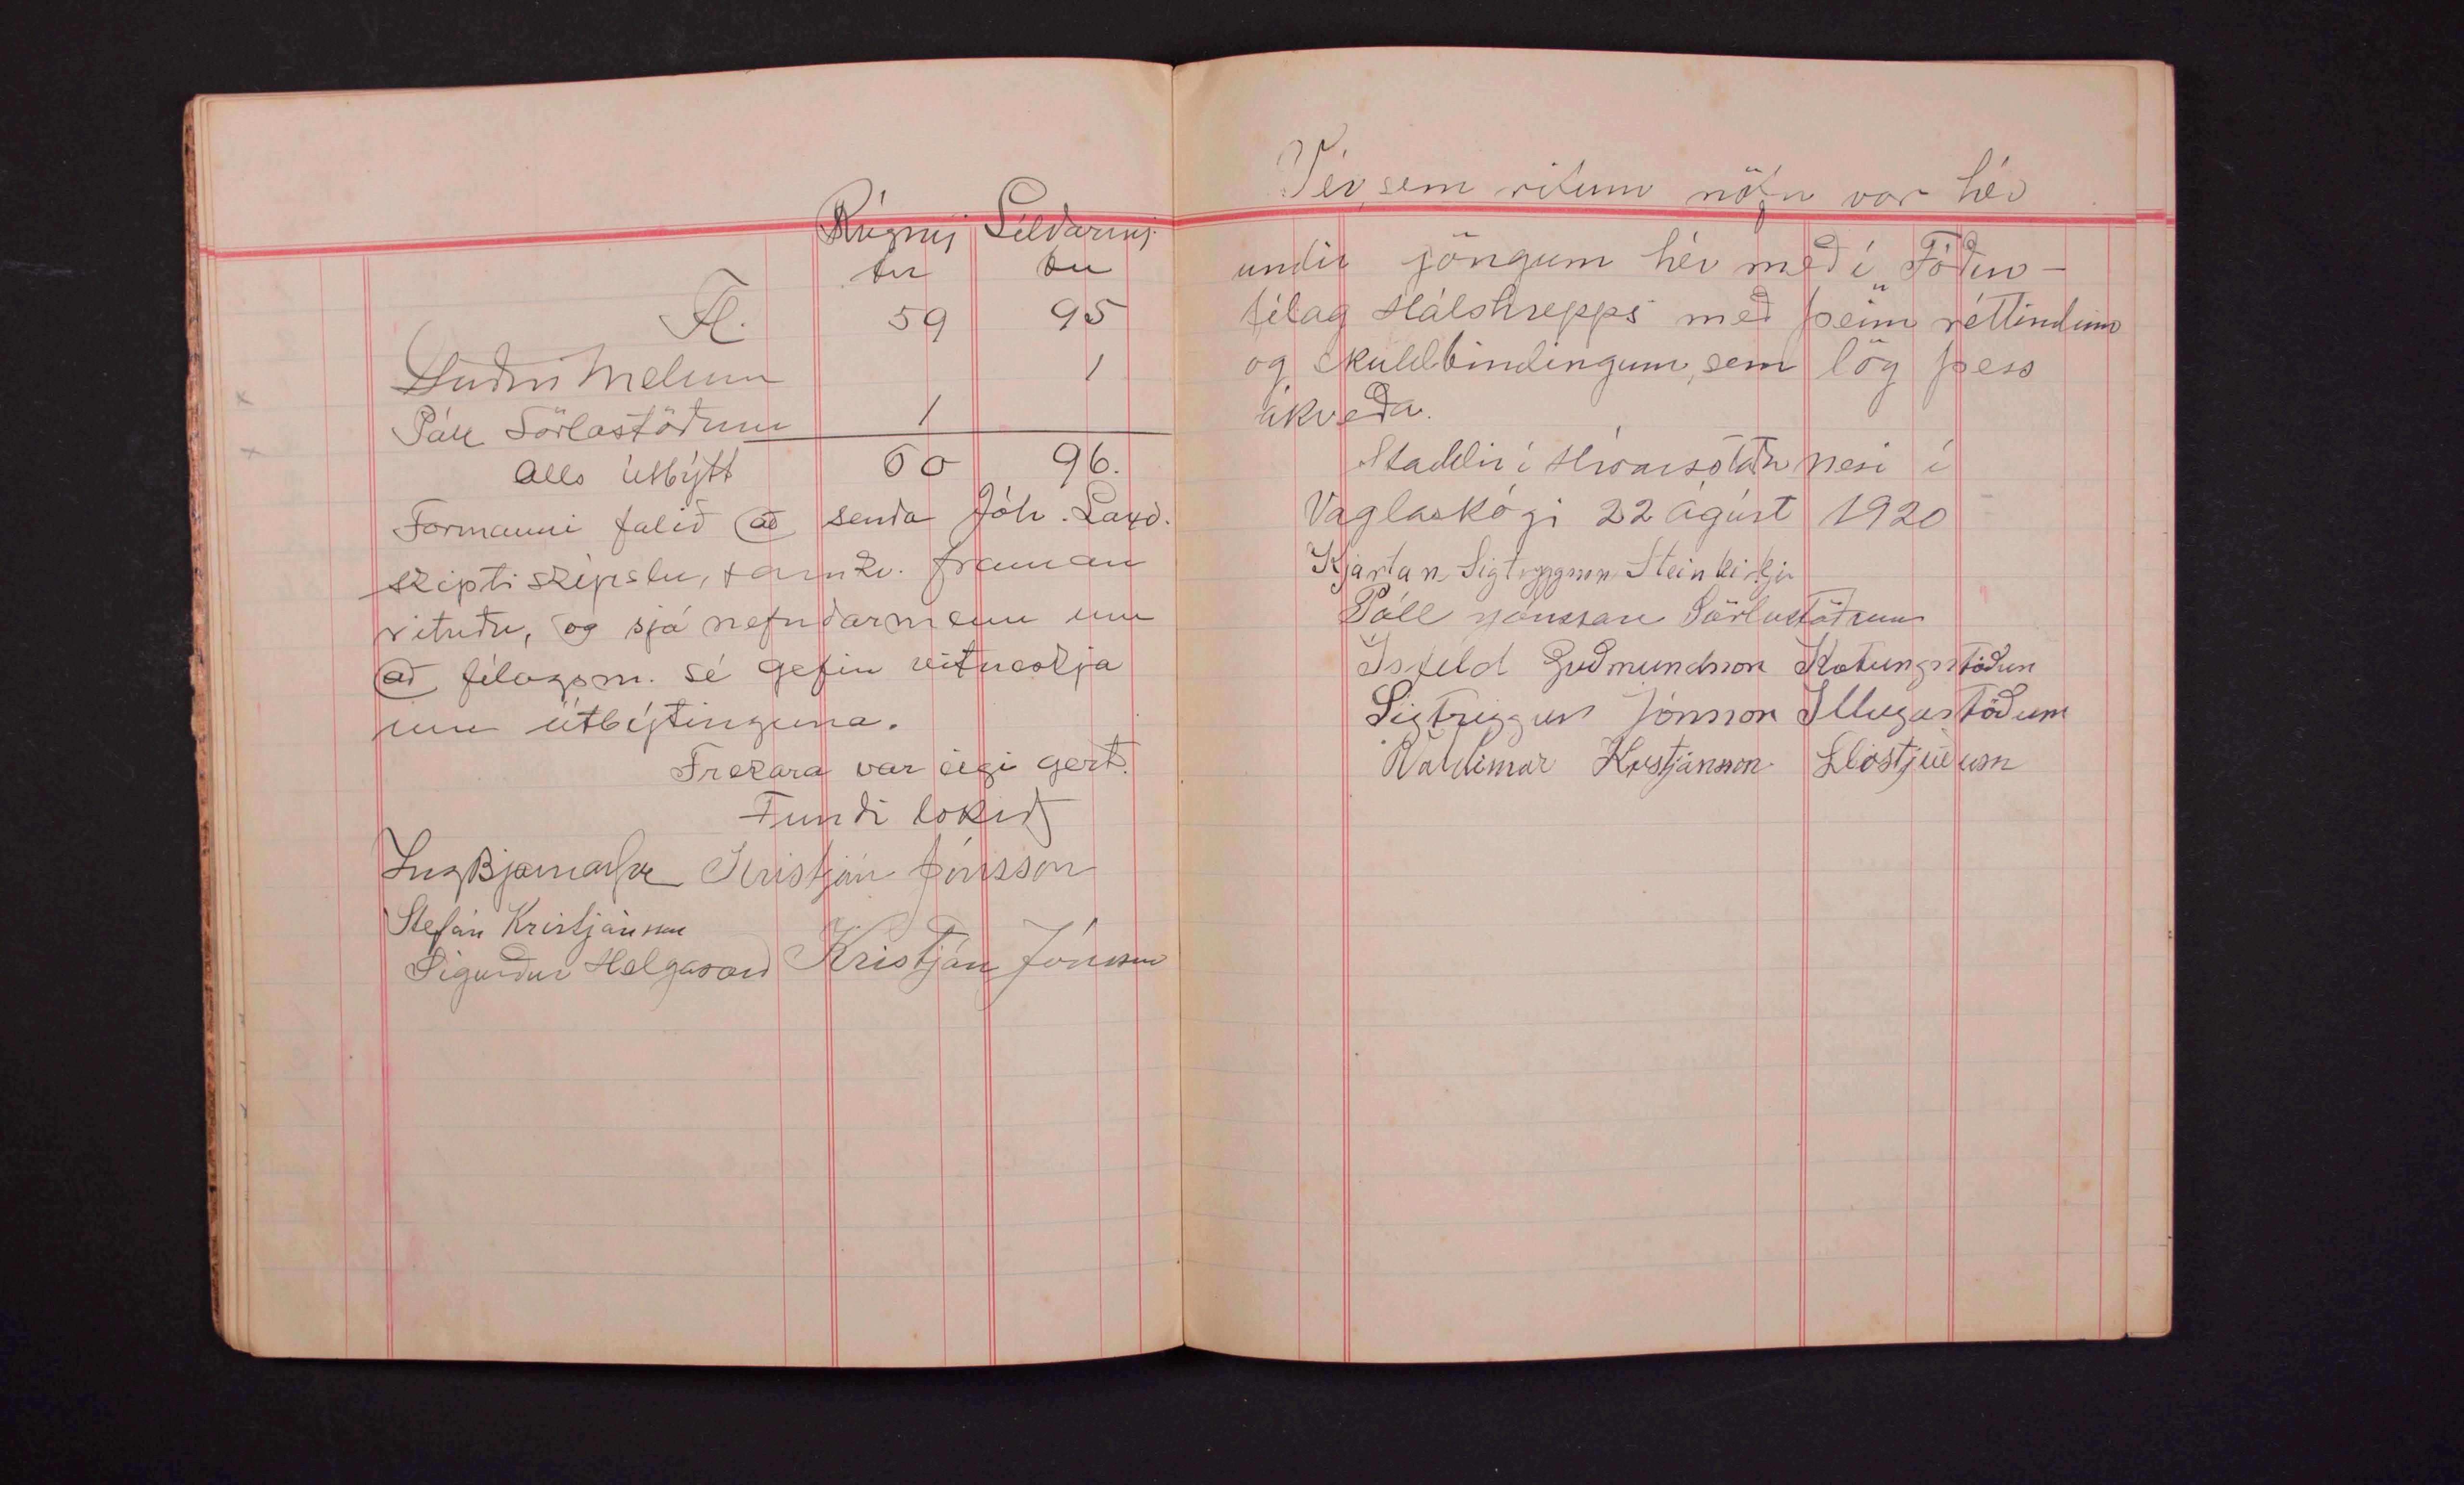 Rúgmj Síldarmj.
tu tu
Fl. 59 95
Guðni Melum 1
Páll Sörlastöðum 1
Alls útbýtt 60 96.
Formanni falið að senda Jóh. Laxd.
skipti skipslu, samkv. framan
rituðu, og sjá nefndarmenn um
að félagsm. sé gefin vitneskja
um útbýtinguna.
Frekara var eigi gert.
Fundi lokið
IngBjarnarson Kristján Jónsson
Stefán Kristjánsson
Sigurður Helgason Kristján Jónsson
Vér, sem ritum nöfn vor hér
undir göngum hér með í „Fóður-
félag Hálshrepps“ með þeim réttindum
og skuldbindingum, sem lög þess
ákveða.
Staddir í Hróarsstaðanesi í
Vaglaskógi 22 ágúst 1920
Kjartan Sigtryggsson Steinkirkju
Páll Jónsson Sörlastöðum
Ísfeld Guðmundsson Kotungsstöðum
Sigtriggur Jónsson Illugastöðum
Valdimar Kristjánsson